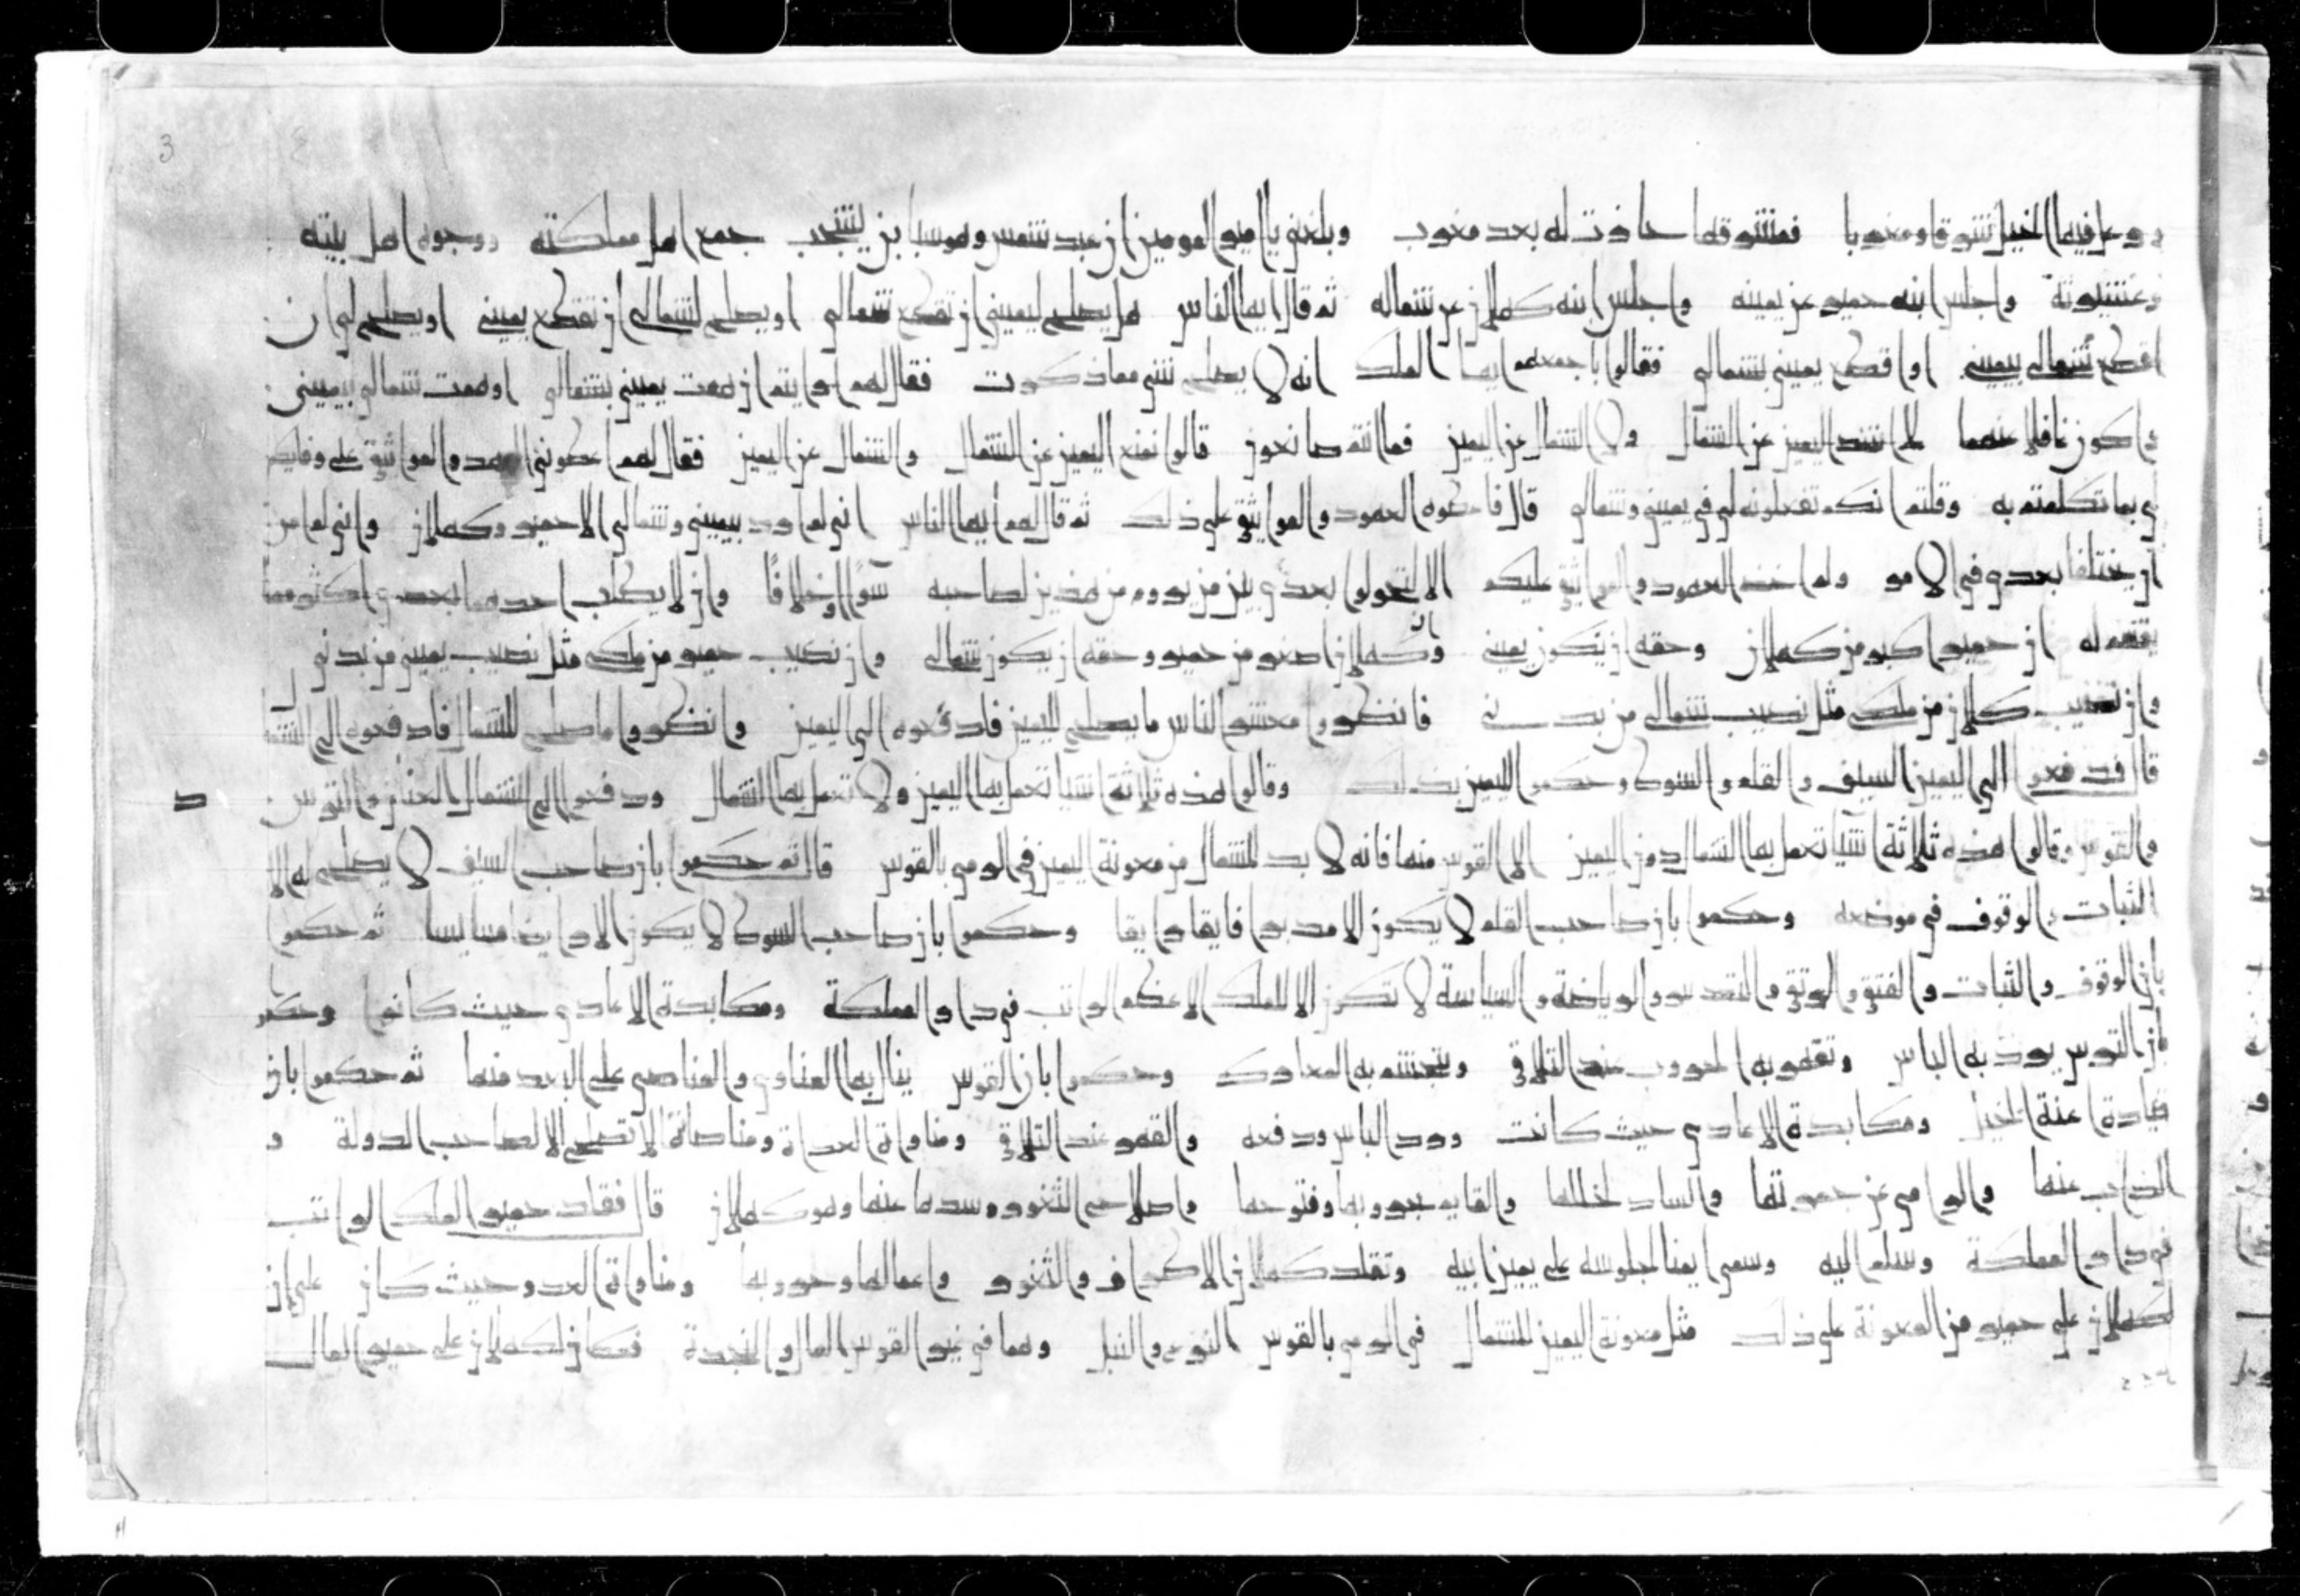 3
ورعا فيها الخيل شرقا ومغربا فمشرقها حاذت له بعد مغرب وبلغني يا امير المومنين ان عبد شمس وهو سبا بن يشجب جمع اهل مملكته ووجوه اهل بيته
وعشيرته واجلس ابنه حمير عن يمينه واجلس ابنه كهلان عن شماله ثم قال ايها الناس هل يصلح ليميني ان تقطع شمالي او يصلح لشمالي ان تقطع يميني او يصلح لي ان
اقطع شمالي بيميني او اقطع يميني بشمالي فقالوا باجمعهم ايها الملك انه لا يصلح شي مما ذكرت فقال لهم ارايتم ان همت يميني بشمالي او همت شمالي بيميني
واكون غافلا عنهما الا تشد اليمين عن الشمال ولا الشمال عن اليمين فما انتم صانعون قالوا نمنع اليمين عن الشمال والشمال عن اليمين فقال لهم اعطوني العهد والمواثيق على وفايكم
لي بما تكلمتم به وقلتم انكم تفعلونه لي في يميني وشمالي قال فاعطوه العهود والمواثيق على ذلك ثم قال لهم ايها الناس اني لم ارد بيميني وشمالي الا حمير وكهلان واني لم امن
ان يختلفا بعدي في الامر ولم اخذ العهود والمواثيق عليكم الا لتحولوا بعدي بين من يروم من هذين لصاحبه سوا او خلافا وان لا يطلب احدهما بعدي اكثر مما
يقسم له ان حمير اكبر من كهلان وحقه ان يكون يميني وكهلان اصغر من حمير وحقه ان يكون شمالي وان نصيب حمير من ملكي مثل نصيب يميني من بدني
وان نصيب كهلان من ملكي مثل نصيب شمالي من بدني فانظروا معشر الناس ما يصلح لليمين فادفعوه الى اليمين وانظروا ما صلح للشمال فادفعوه الى الشمال
قال فدفعوا الى اليمين السيف والقلم والسوط وحكموا لليمين بذلك وقالوا هذه ثلاثة اشيا تعمل بها اليمين ولا تعمل بها الشمال ودفعوا الى الشمال العنان والترس
والقوس وقالوا هذه ثلاثة اشيا تعمل بها الشمال دون اليمين الا القوس منها فانه لا بد للشمال من معونة اليمين في الرمي بالقوس قال ثم حكموا بان صاحب السيف لا يصلح له الا
الثبات والوقوف في موضعه وحكموا بان صاحب القلم لا يكون الا مدبرا فاتقا راتقا وحكموا بان صاحب السوط لا يكون الا رايضا سايسا ثم حكموا
بان الوقوف والثبات والفتق والرتق والتقدير والرياضة والسياسة لا تكون الا للملك الاعظم الراتب في دار المملكة ومكابدة الاعادي حيث كانوا وحكموا
بان الترس يرد به الباس وتقهر به الحروب عند التلاقي ويتجشم به المعارك وحكموا بان القوس ينال بها المناوي والمناصي على البعد منهما ثم حكموا بان
قيادة اعنة الخيل ومكابدة الاعادي حيث كانت ورد الباس ودفعه والقهر عند التلاقي ومناواة العداة ومناصاة لا تصلح الا لصاحب الدولة و
الذاب عنها والرامي عن جمرتها والساد لخللها والقايم بحروبها وفتوحها واصلاح الثغور وسدها عنها وهو كهلان قال فقلد حمير الملك الراتب
في دار المملكة وسلم اليه وسمي ايمنا لجلوسه على يمين ابيه وتقلد كهلان الاطراف والثغور واعمالها وحروبها ومناواة العدو حيث كان على ان
لكهلان على حمير من المعونة على ذلك مثل معونة اليمين للشمال في الرمي بالقوس النزع والنبل وهما في غير القوس المال والنجدة فكان لكهلان على حمير المال